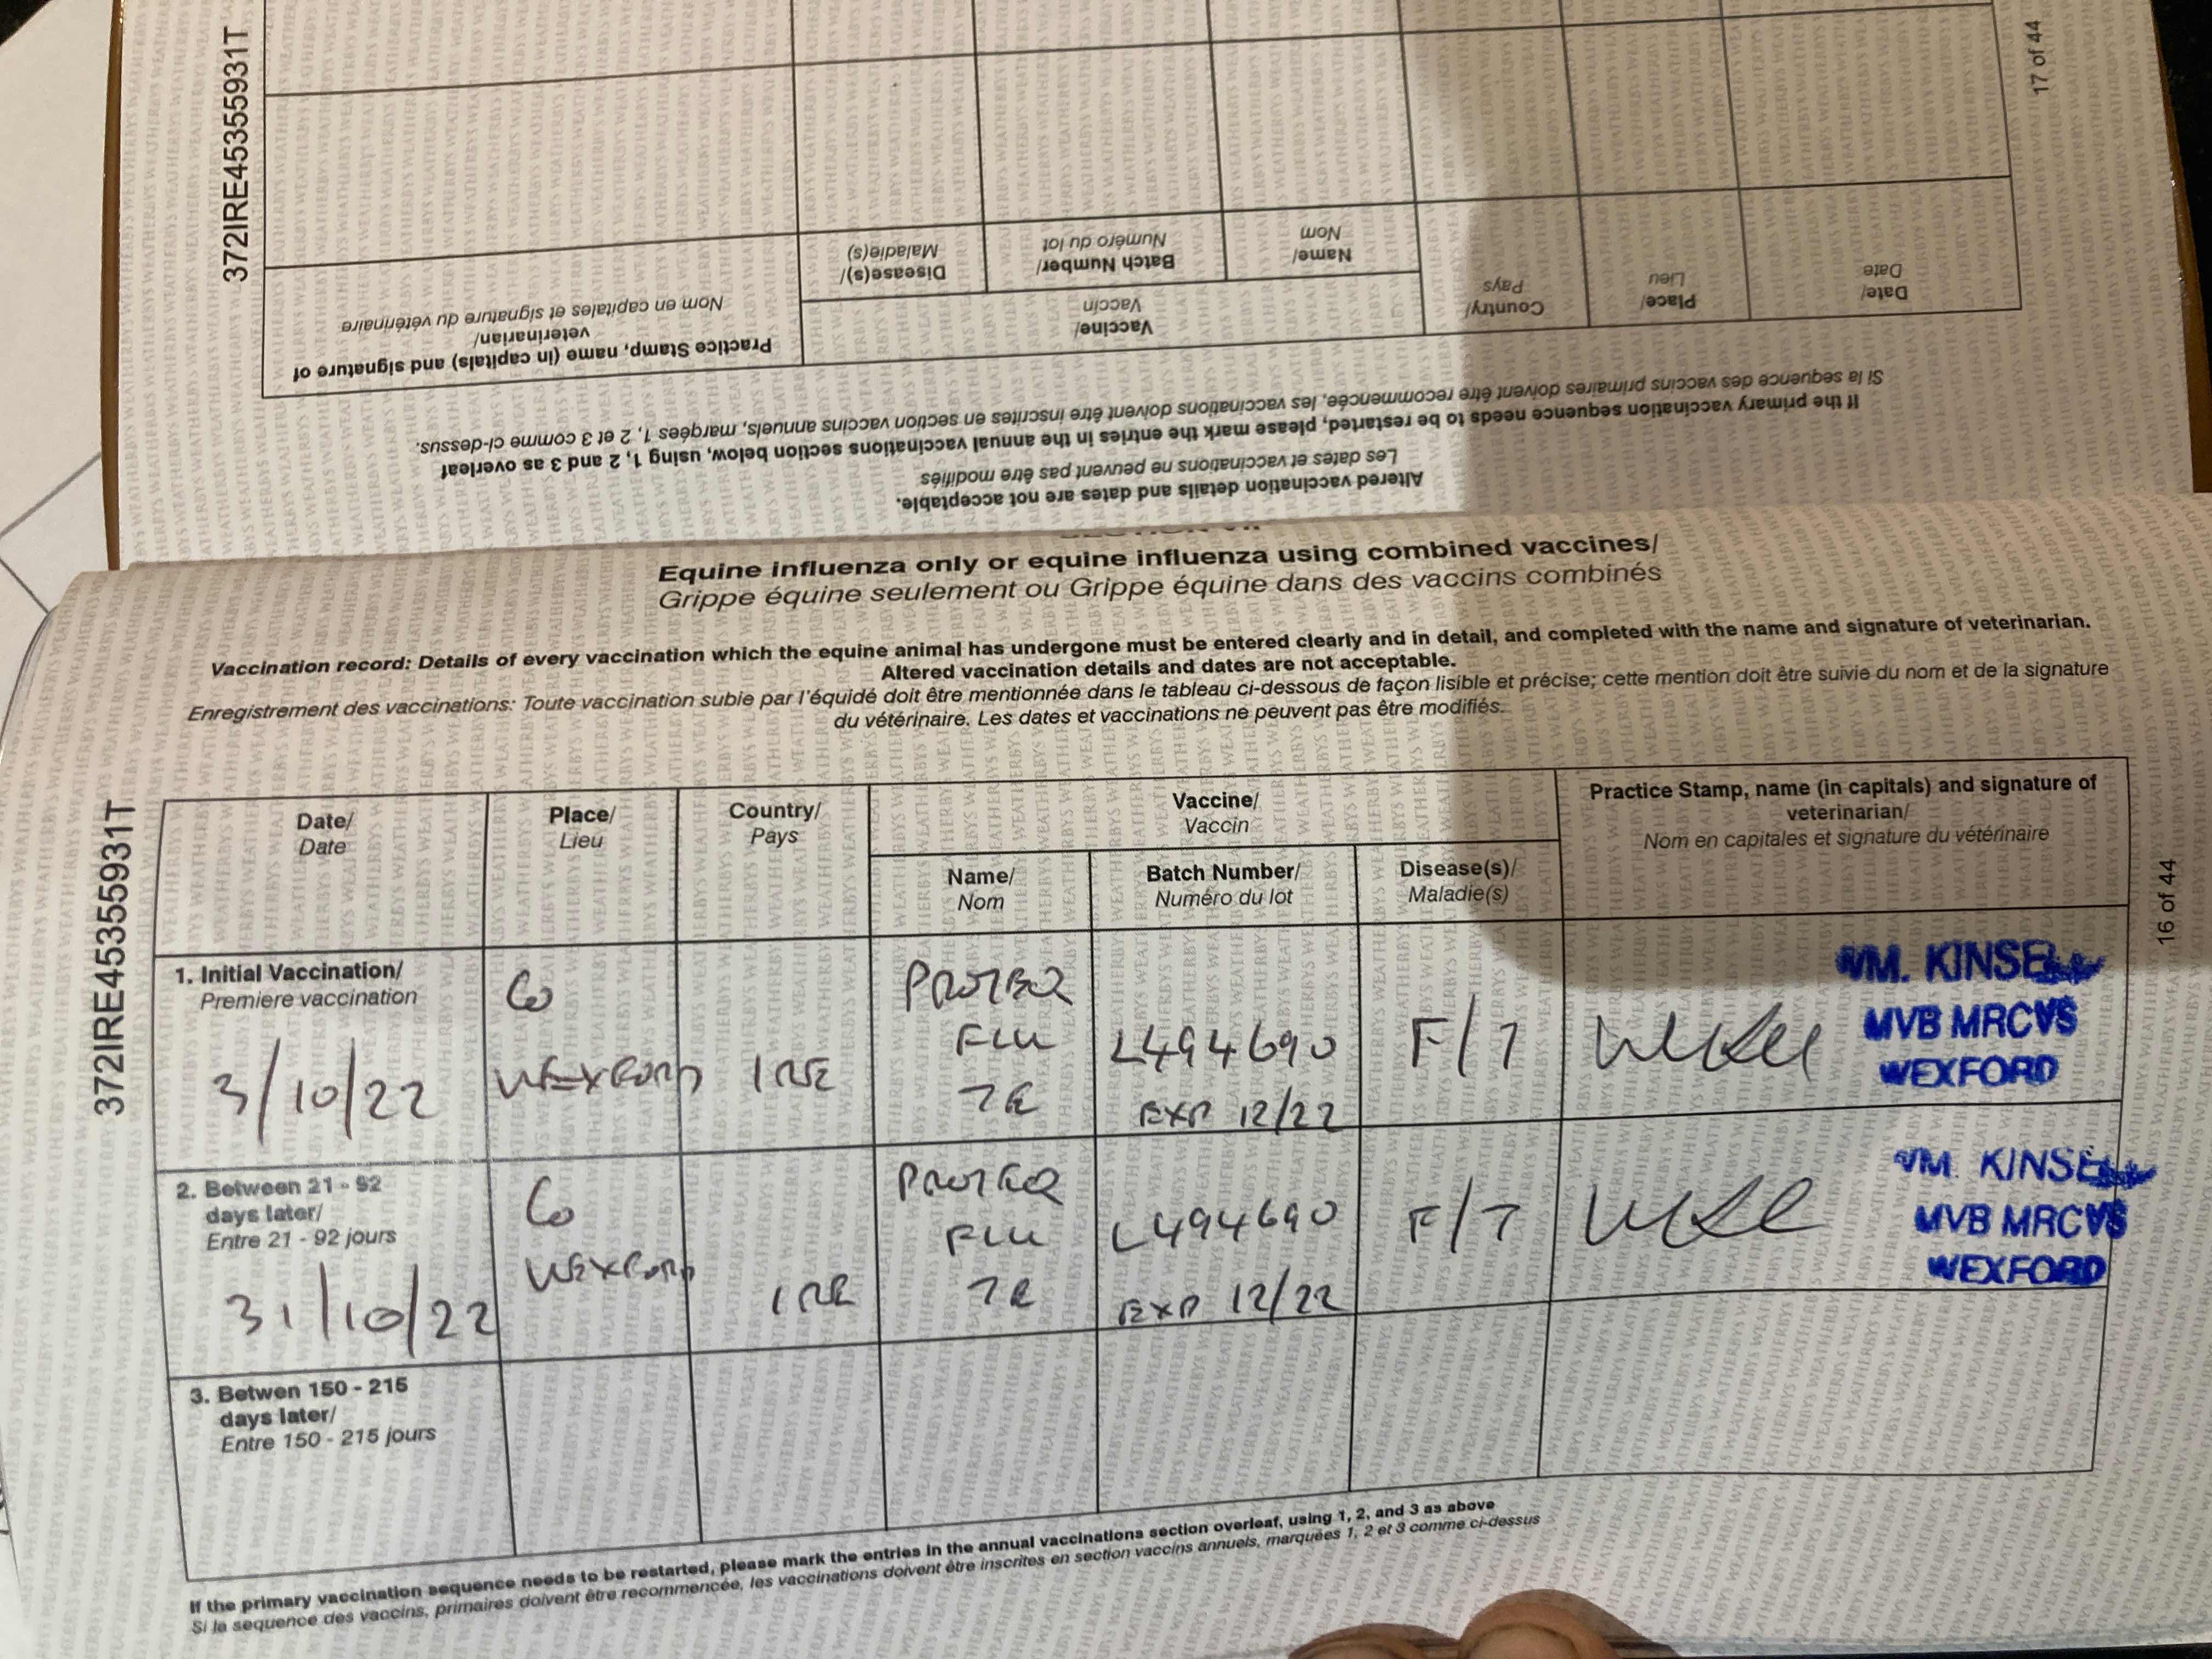 372IRE45355931T
17 of 44
Practice Stamp, name (in capitals) and signature of
veterinarian/
Nom en capitales et signature du vétérinaire
Disease(s)/
Maladie(s)
Batch Number/
Numéro du lot
Name/
Nom
Vaccine/
Vaccin
Country/
Pays
Place/
Lieu
Date/
Date
If the primary vaccination sequence needs to be restarted, please mark the entries in the annual vaccinations section below, using 1, 2 and 3 as overleaf
Si la sequence des vaccins primaires doivent être recommencée, les vaccinations doivent être inscrites en section vaccins annuels, marqées 1, 2 et 3 comme ci-dessus.
Altered vaccination details and dates are not acceptable.
Les dates et vaccinations ne peuvent pas être modifiés
Equine influenza only or equine influenza using combined vaccines/
Grippe équine seulement ou Grippe équine dans des vaccins combinés
Vaccination record: Details of every vaccination which the equine animal has undergone must be entered clearly and in detail, and completed with the name and signature of veterinarian.
Altered vaccination details and dates are not acceptable.
Enregistrement des vaccinations: Toute vaccination subie par l'équidé doit être mentionnée dans le tableau ci-dessous de façon lisible et précise; cette mention doit être suivie du nom et de la signature
du vétérinaire. Les dates et vaccinations ne peuvent pas être modifiés.
372IRE45355931T
16 of 44
Date/
Date
Place/
Lieu
Country/
Pays
Vaccine/
Vaccin
Name/
Nom
Batch Number/
Numéro du lot
Disease(s)/
Maladie(s)
Practice Stamp, name (in capitals) and signature of
veterinarian/
Nom en capitales et signature du vétérinaire
1. Initial Vaccination/
Premiere vaccination
3/10/22
Co
WEXFORD
IRE
PROTEQ
FLU
TE
L494690
EXP 12/22
F/T
WM. KINSE
MVB MRCVS
WEXFORD
2. Between 21 - 92
days later/
Entre 21 - 92 jours
31/10/22
Co
WEXFORD
IRE
PROTEQ
FLU
TE
L494690
EXP 12/22
F/T
WM. KINSE
MVB MRCVS
WEXFORD
3. Betwen 150 - 215
days later/
Entre 150 - 215 jours
If the primary vaccination sequence needs to be restarted, please mark the entries in the annual vaccinations section overleaf, using 1, 2, and 3 as above
Si la sequence des vaccins, primaires doivent être recommencée, les vaccinations doivent être inscrites en section vaccins annuels, marquées 1, 2 et 3 comme ci-dessus